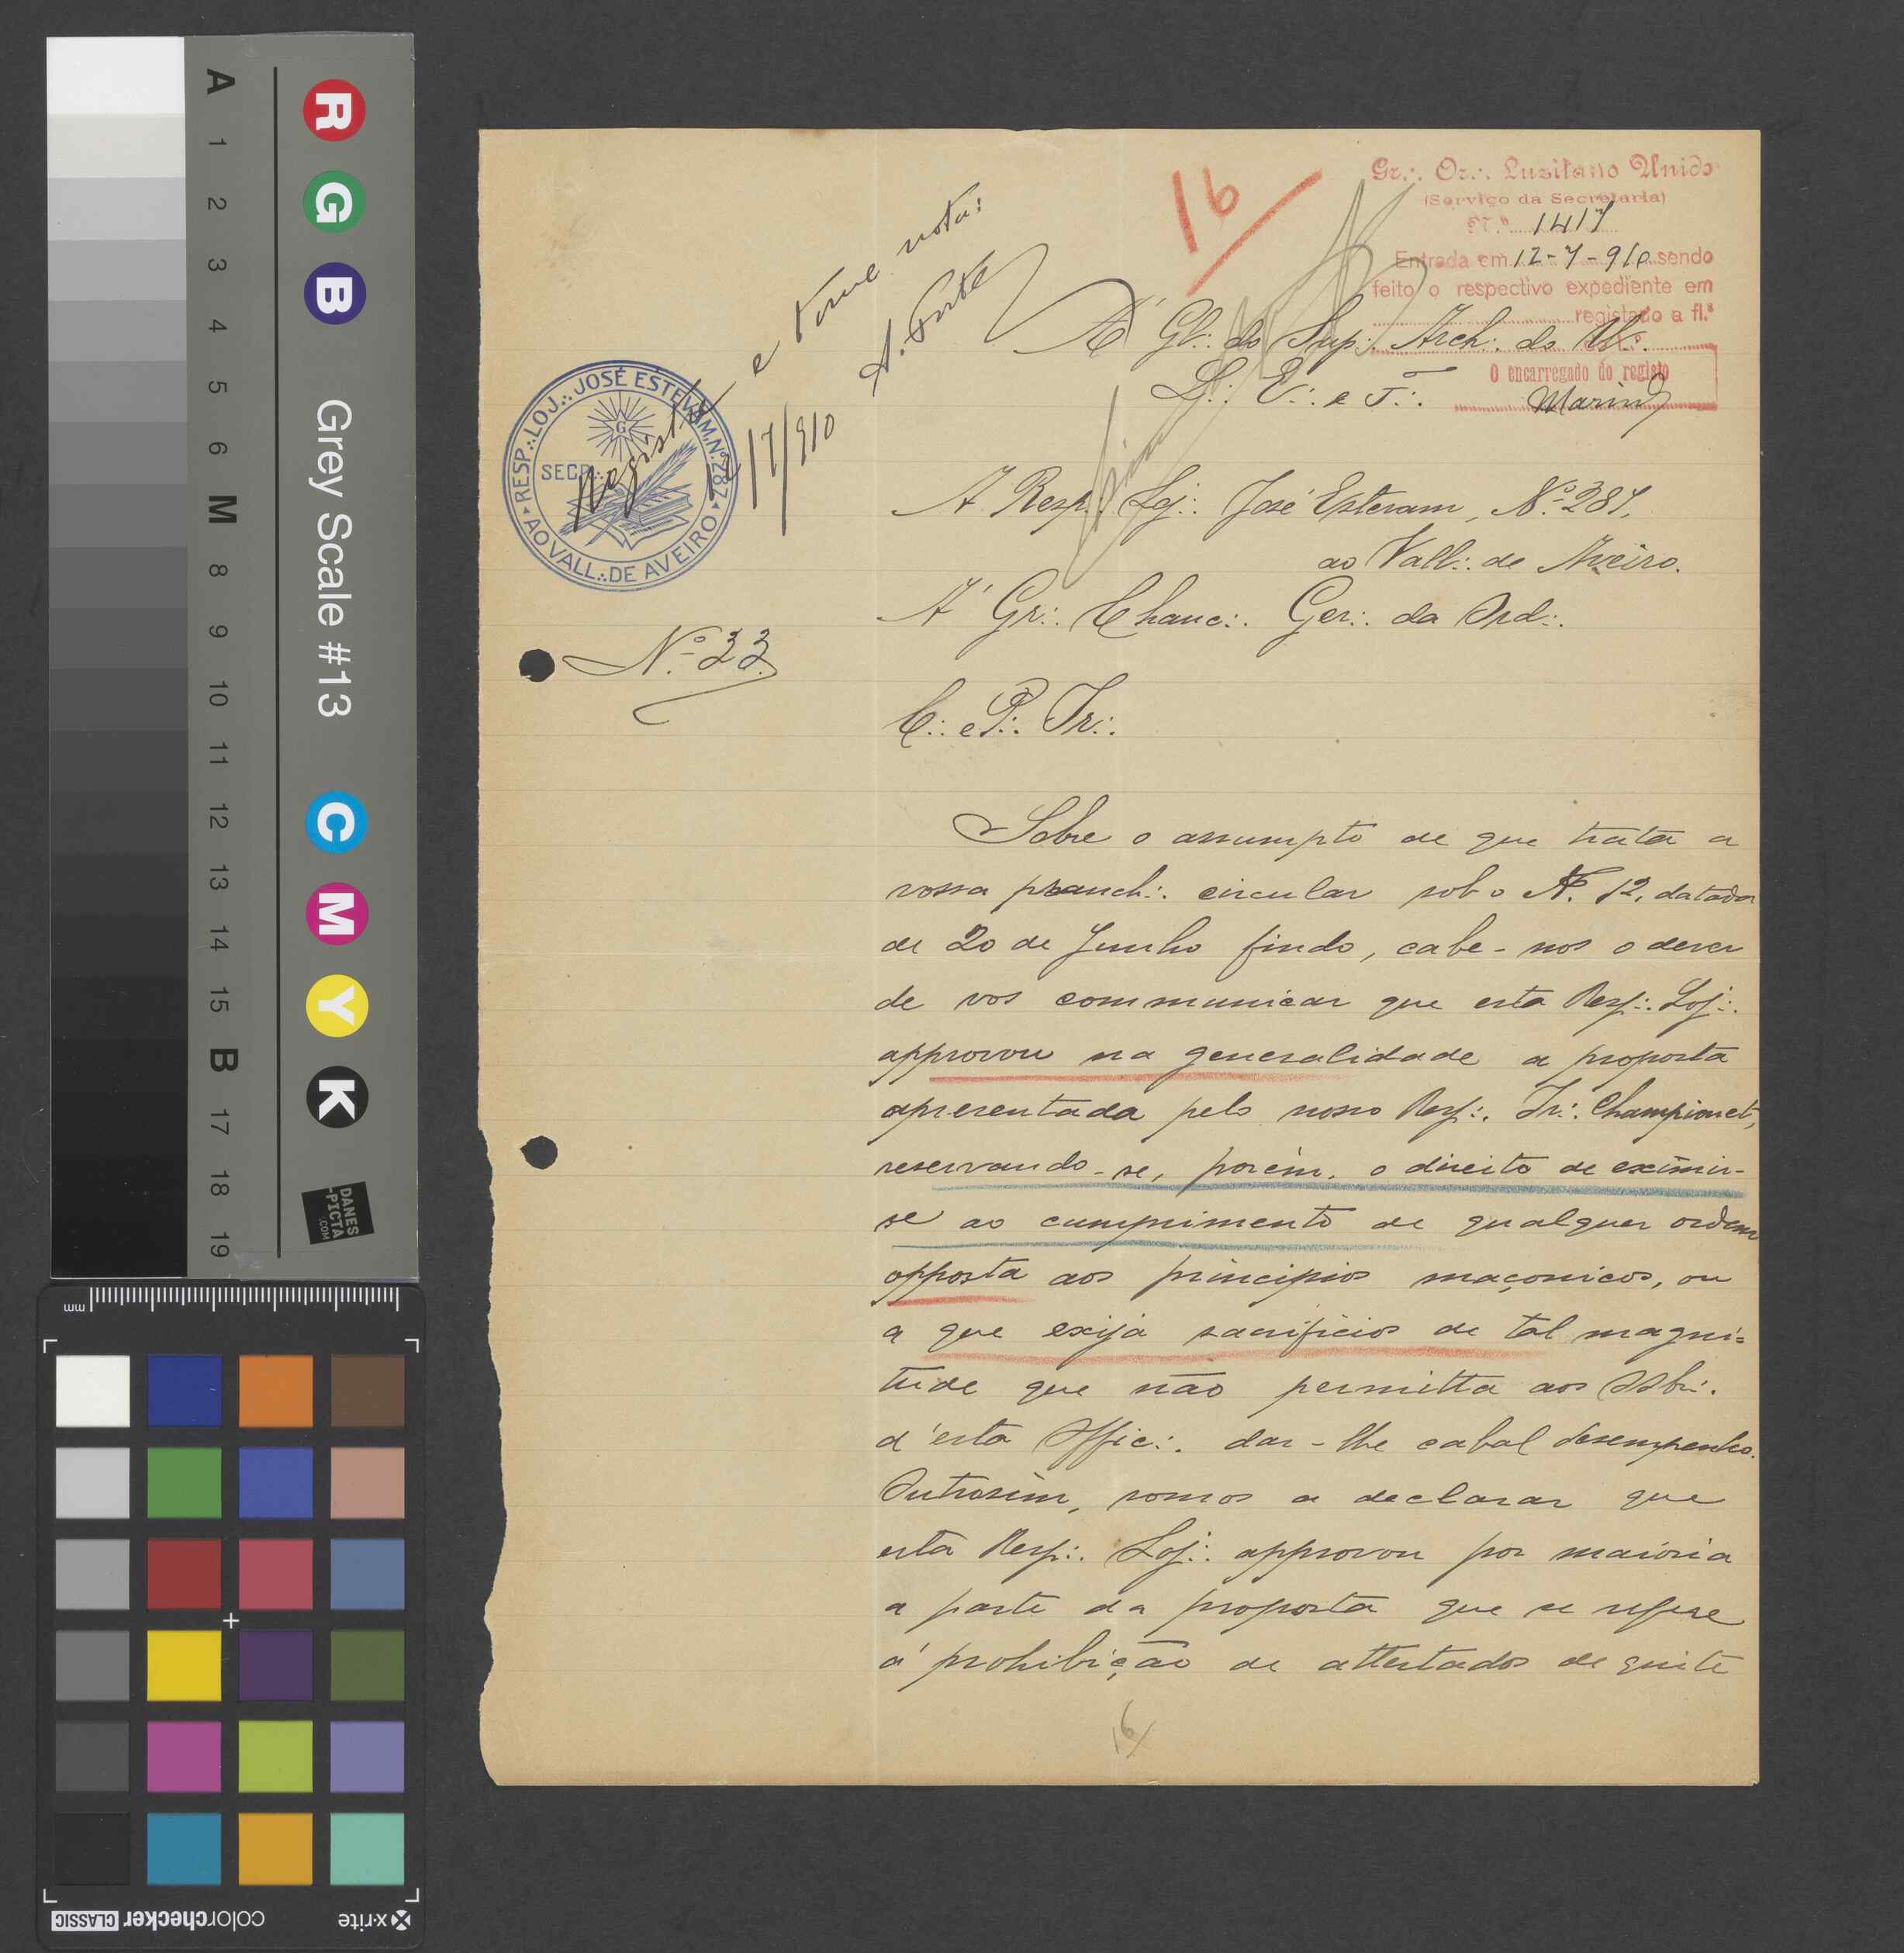 16
Gr∴ Or∴ Luzitano Unido
(Serviço da Secretaria)
N.º 1417
Entrada em 12-7-910 sendo
feito o respectivo expediente em
registado a fl.ª
O encarregado do registo
Marinz
Registe e tome nota:
12/7/910
A. Forte
RESP∴ LOJ∴ JOSÉ ESTEVAM. Nº 287
AO VALL∴ DE AVEIRO
SECR∴
G
Á Gl∴ do Sup∴ Arch∴ do U∴
L∴ E∴ e F∴
A Resp∴ Loj∴ José Estevam, Nº 287,
ao Vall∴ de Aveiro.
Á Gr∴ Chanc∴ Ger∴ da Ord∴
Nº 33
C∴ e P∴ Ir∴
Sobre o assumpto de que trata a
vossa pranch∴ circular sob o Nº 12, datada
de 20 de Junho findo, cabe-nos o dever
de vos communicar que esta Resp∴ Loj∴
approvou na generalidade a proposta
apresentada pelo nosso Resp∴ Ir∴ Championet,
reservando-se, porém, o direito de eximir-
se ao cumprimento de qualquer ordem
opposta aos principios maçonicos, ou
a que exija sacrificios de tal magni-
tude que não permitta aos Obbr∴
d'esta Offic∴ dar-lhe cabal desempenho.
Outrosim, somos a declarar que
esta Resp∴ Loj∴ approvou por maioria
a parte da proposta que se refere
á prohibição de attestados de quite
16
A
1
2
3
4
5
6
M
8
9
10
11
12
13
14
15
B
17
18
19
R G B
Grey Scale #13
C M Y K
DANES
-PICTA
.COM
mm
x-rite
colorchecker CLASSIC